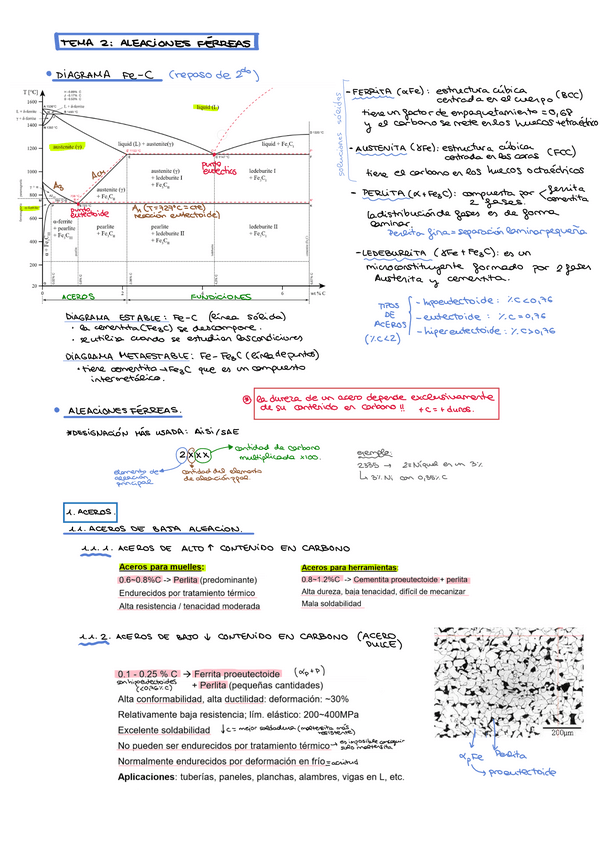 TEMA 2: ALEACIONES FÉRREAS
• DIAGRAMA Fe-C (repaso de 2º)
T [°C]
1600
1400
1200
1000
800
600
400
200
20
liquid (L)
austenite (γ)
liquid (L) + austenite(γ)
liquid + Fe3C
punto eutéctico
A3
Acm
austenite (γ) + Fe3CII
austenite (γ) + ledeburite I + Fe3CII
ledeburite I + Fe3CI
punto eutectoide
A1 (T=727°C=cte) reacción eutectoide
α-ferrite + pearlite + Fe3CIII
pearlite + Fe3CII
pearlite + ledeburite II + Fe3CII
ledeburite II + Fe3CI
wt % C
ACEROS
FUNDICIONES
soluciones sólidas
- FERRITA (αFe): estructura cúbica centrada en el cuerpo (BCC)
tiene un factor de empaquetamiento = 0,68
y el carbono se mete en los huecos tetraédrico
- AUSTENITA (γFe): estructura cúbica centrada en las caras (FCC)
tiene el carbono en los huecos octaédricos
- PERLITA (α+Fe3C): compuesta por 2 fases. ferrita cementita
la distribución de fases es de forma laminar.
Perlita fina = separación laminar pequeña
- LEDEBURITA (γFe + Fe3C): es un
microconstituyente formado por 2 fases
Austenita y cementita.
TIPOS DE ACEROS (%C<2)
- hipoeutectoide: %C<0,76
- eutectoide: %C=0,76
- hipereutectoide: %C>0,76
DIAGRAMA ESTABLE: Fe-C (línea sólida)
• la cementita (Fe3C) se descompone.
• se utiliza cuando se estudian las condiciones
DIAGRAMA METAESTABLE: Fe-Fe3C (línea de puntos)
• tiene cementita → Fe3C que es un compuesto
intermetálico.
⊛ la dureza de un acero depende exclusivamente
de su contenido en carbono!! +C = + duros.
• ALEACIONES FÉRREAS.
*DESIGNACIÓN MÁS USADA: AiSi/SAE
2xxx
cantidad de carbono multiplicada x100.
elemento de aleación principal
cantidad del elemento de aleación ppal.
ejemplo:
2335 → 2=Níquel es un 3%
↳ 3% Ni con 0,35% C
1. ACEROS.
1.1. ACEROS DE BAJA ALEACION.
1.1.1. ACEROS DE ALTO ↑ CONTENIDO EN CARBONO
Aceros para muelles:
0.6~0.8%C -> Perlita (predominante)
Endurecidos por tratamiento térmico
Alta resistencia / tenacidad moderada
Aceros para herramientas:
0.8~1.2%C -> Cementita proeutectoide + perlita
Alta dureza, baja tenacidad, difícil de mecanizar
Mala soldabilidad
1.1.2. ACEROS DE BAJO ↓ CONTENIDO EN CARBONO (ACERO DULCE)
0.1 - 0.25 % C → Ferrita proeutectoide (αp+P)
son hipoeutectoides (<0,76%C)
+ Perlita (pequeñas cantidades)
Alta conformabilidad, alta ductilidad: deformación: ~30%
Relativamente baja resistencia; lím. elástico: 200~400MPa
Excelente soldabilidad ↓C = mejor soldadura (martensita más resistente)
No pueden ser endurecidos por tratamiento térmico → es imposible conseguir solo martensita
Normalmente endurecidos por deformación en frío = acritud
Aplicaciones: tuberías, paneles, planchas, alambres, vigas en L, etc.
200µm
αpFe
Perlita
↳ proeutectoide